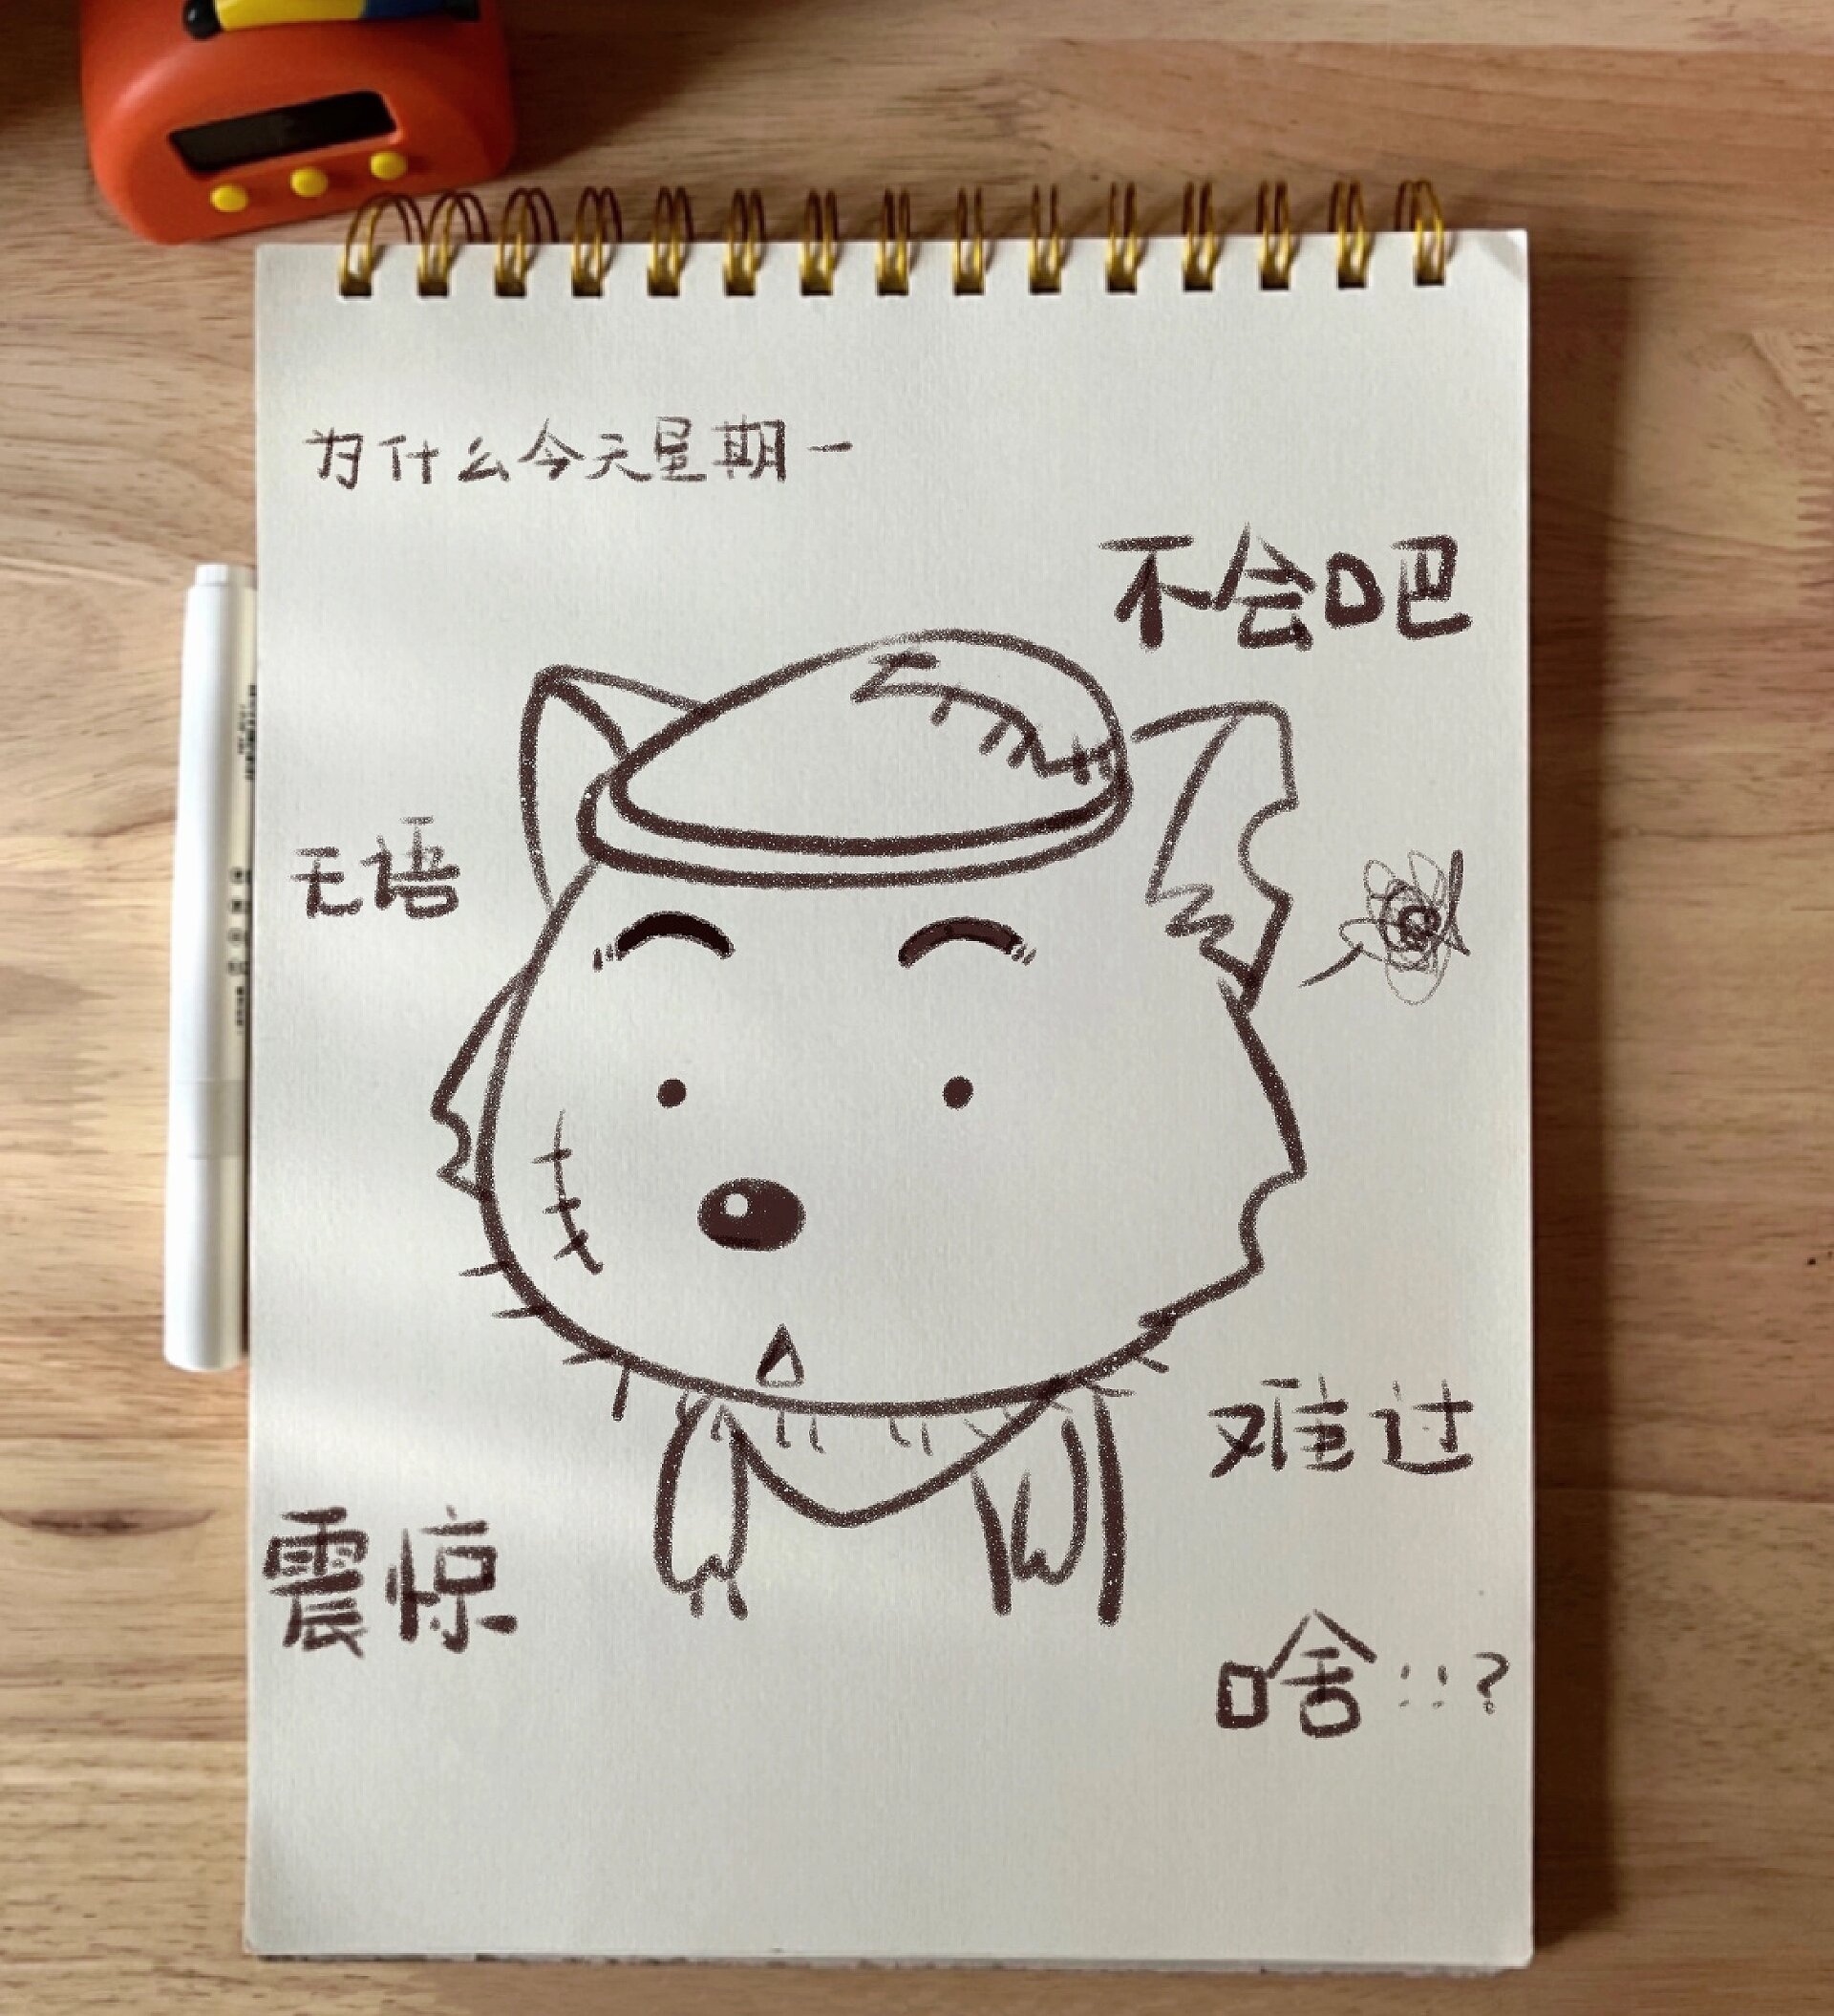 为什么今天星期一
不会吧
无语
难过
震惊
啥：：？